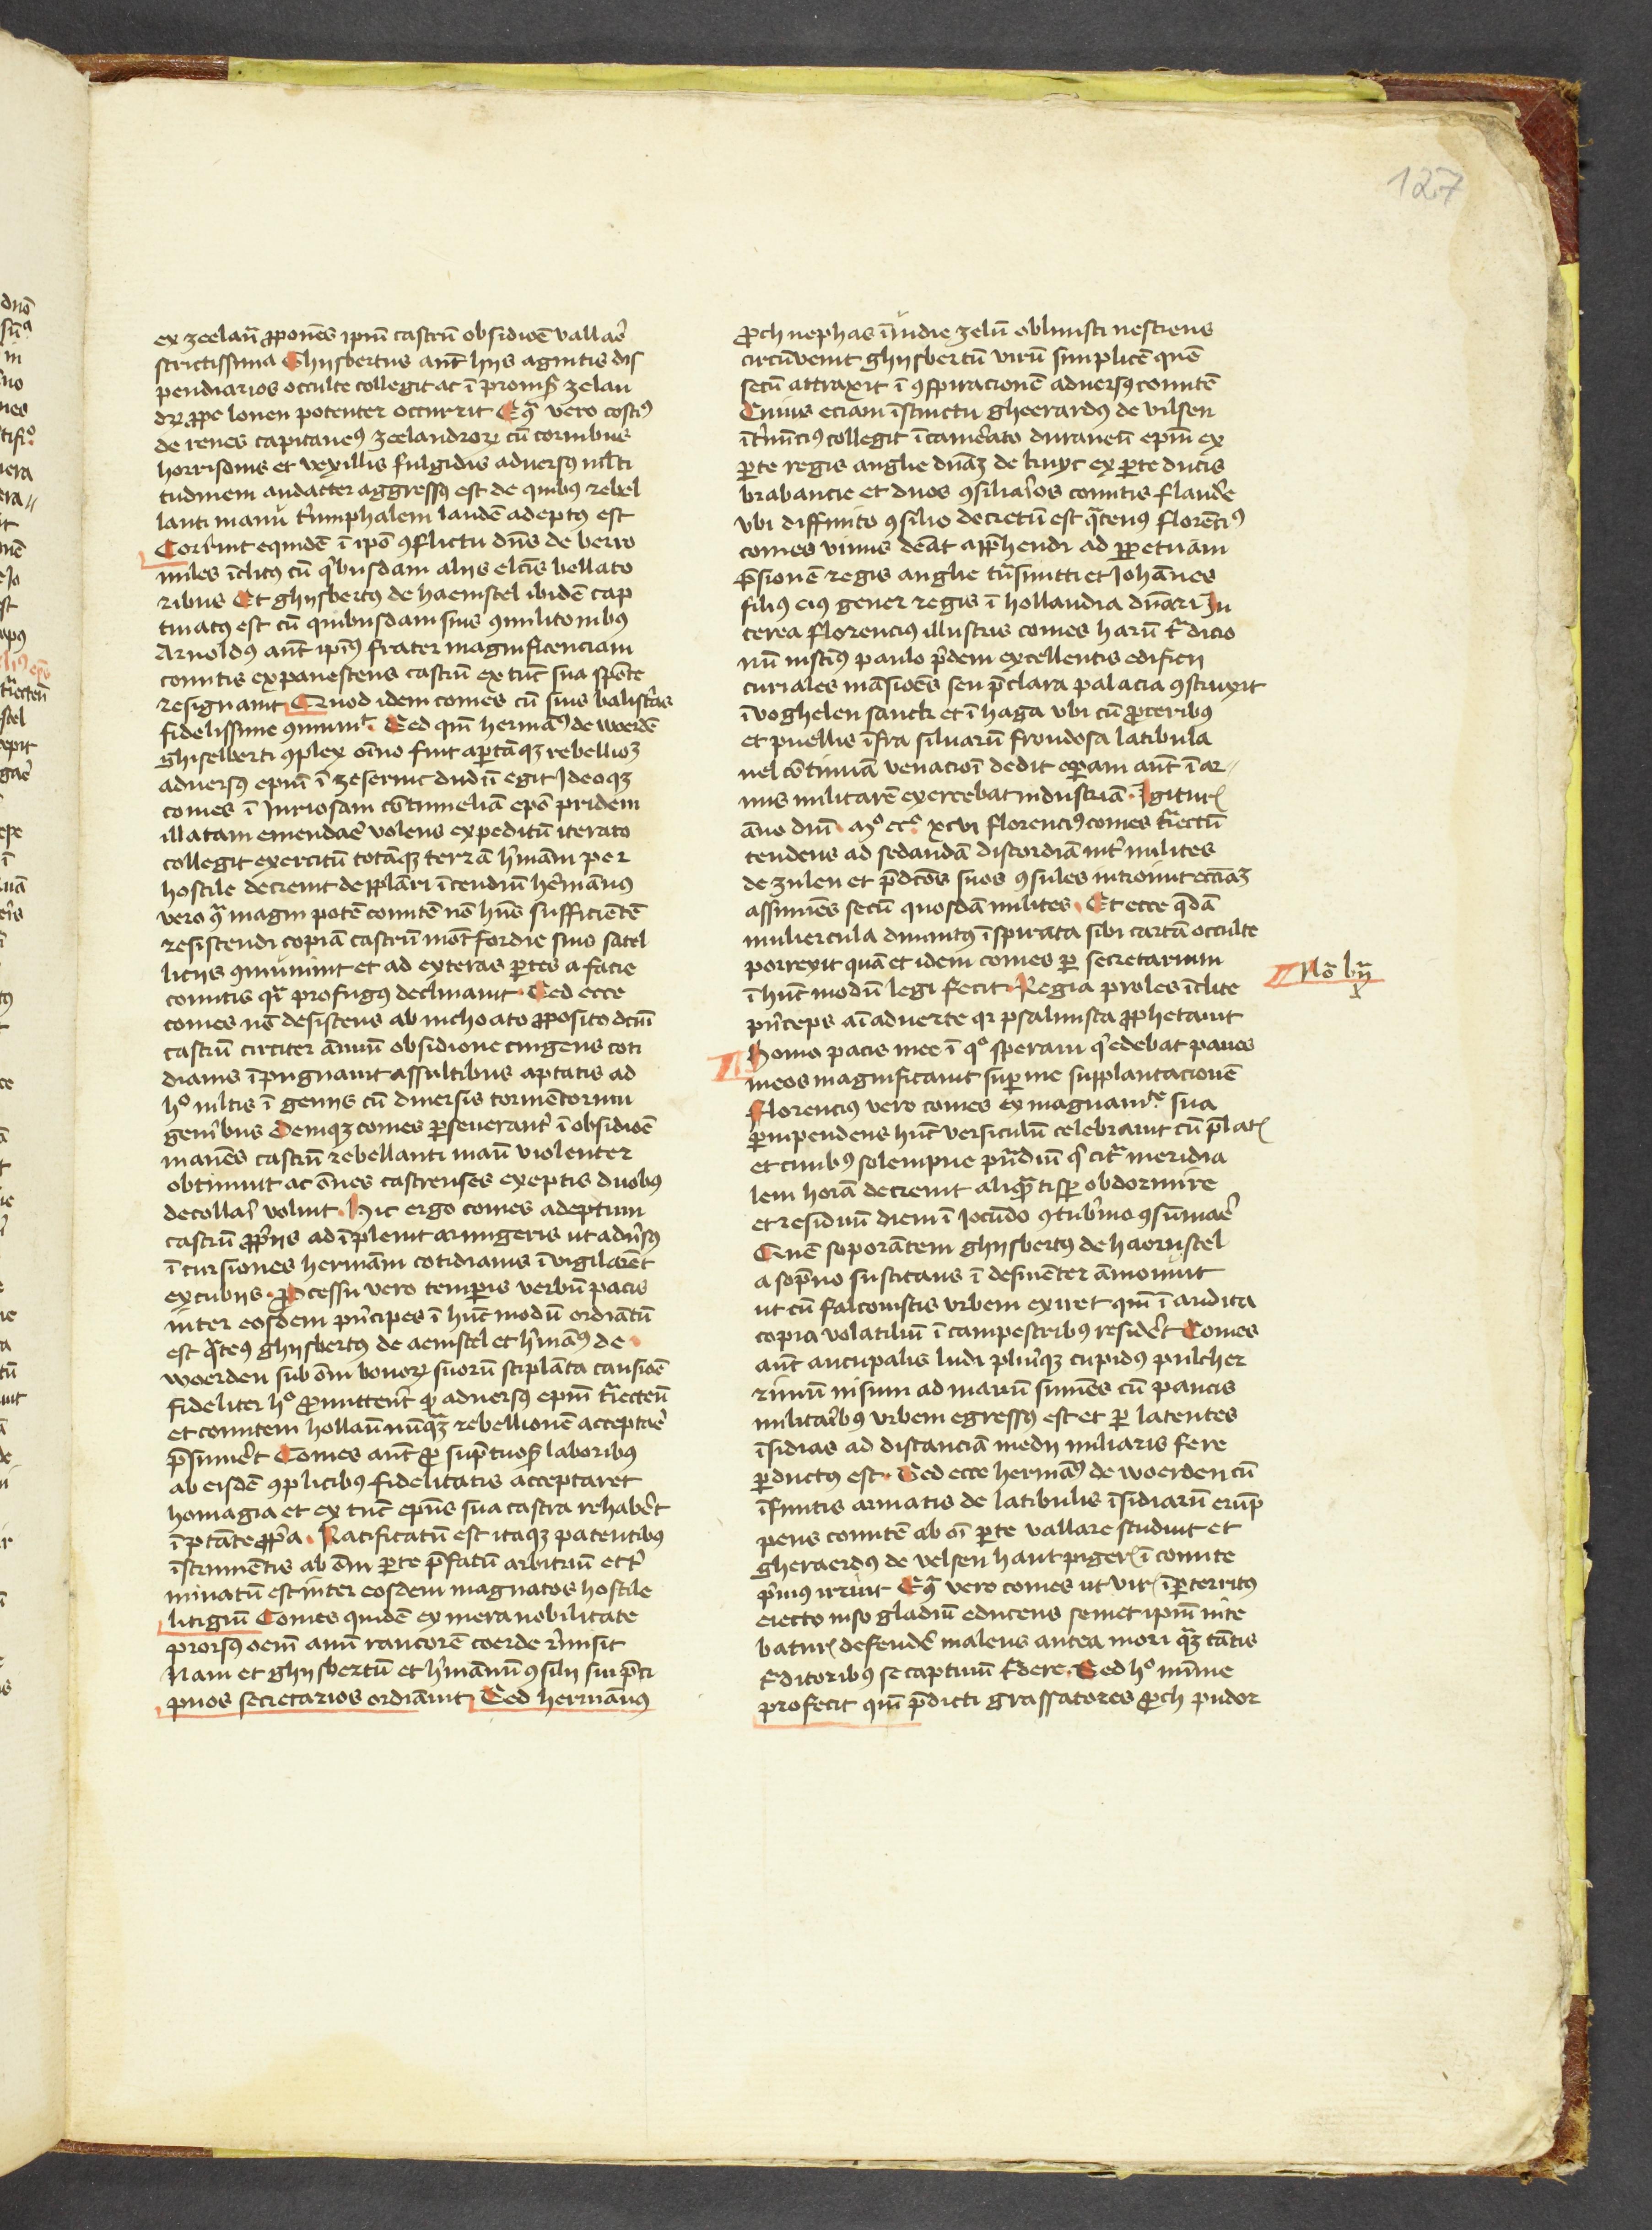 127
ex zeelan̄ ꝓponēs ipm̄ castrū obsidiōe vallaē
strictissima Ghijsbertus aut̄ hijs agnitis dis
pendiarios occulte collegit ac ī promis zelan
dꝝ ꝓpe lonen potenter occurrit Eqͣ vero costꝰ
de renes capitaneꝰ zeelandroꝝ cū cornibus
horrisonis et vexillis fulgidis adversꝰ ml̄ti
tudinem audacter aggressꝰ est de quibus rebel
lanti manu t'umphalem laudē adeptꝰ est
Corruit equidē ī ip̄o ꝯflictu dn̄s de berro
miles īclitꝰ cū q'busdam alijs el̄cis bellato
ribus Et ghijsbertꝰ de haemstel ibidē cap
tivatꝰ est cū quibusdam suis ꝯmilitonibꝰ
Arnoldꝰ aut̄ ipiꝰ frater magnificenciam
comitis expavestens castrū ex tūc sua spōte
resignavit Quod idem comes cū suis balistis
fidelissime ꝯmuniuit. Sed qm̄ hermāꝰ de woerdē
ghiselberti ꝯplex oīno fuit aꝑtāqꝫ rebellioꝫ
adversꝰ epm̄ ī zeserinc dudū egit Ideoqꝫ
comes ī Iuriosam ꝯtumeliā epō pridem
illatam emendaē volens expeditū iterato
collegit exercitū totāqꝫ terrā h'mani per
hostile decrevit depplāri īcendiū hermānus
vero qͣ magni potē comitē nō hn̄s sufficiētē
resistendi copiā castrū mōtfordie suis satel
licijs ꝯmunīuit et ad exteras ꝑtes a facie
comitis qͣi profugꝰ declinavit. Sed ecce
comes nō desistens ab inchoato ꝓposito dcm̄
castrū circiter ānuū obsidione cingens coti
dianis īpugnauit assultibus aptatis ad
hͦ ml̄tis ī genijs cū diversis tormētorum
gen'ibus Demqꝫ comes ꝑseverant' ī obsidiōe
manēs castrū rebellanti manū violenter
obtinuit ac ōnes castrenses exeptis duobꝰ
decollaī voluit. Hic ergo comes adeptum
castrū ꝓprijs ad īplevit armigeris ut advsꝰ
īcursiones hermāni cotidianis īvigilarēt
excubijs. ꝓcessu vero temꝑis verbū pacis
inter eosdem p'ncipes ī hūc modū ordiatū
est qͣteꝰ ghijsbertꝰ de aemstel et h'mānꝰ de
woerden sub ōni bonoꝝ suorū stiplāta causiōe
fideliter hͦ ꝓmittent' ꝙ adversꝰ epm̄ t'iectēn̄
et comitem hollan̄ nūqͣꝫ rebellionē acceptaē
p̄sumēt Comes aut̄ ꝓ sup̄tuos laboribus
ab eisdē ꝯplicibꝰ fidelitatis acceptaret
homagia et ex tūc epūs sua castra rehab't
īptāte ꝓp'a. Ratificatū est itaqꝫ patentibꝰ
īstrumētis ab ōni ꝑte p̄fatū arbitriū et t'
minatū est inter eosdem magnatos hostile
litigiū Comes quidē ex mera nobilitate
prorsꝰ oem̄ aim̄ rancorē corde r'misit
Nam et ghijsbertū et h'mānū ꝯsilij sui p̄ci
puos secretarios ordiavit Sed hermānus
ꝓch nephas īvidie zelū oblivisci nesciens
circūvenit ghijsbertū virū simplicē quē
secū attraxit ī ꝯspiracionē adversꝰ comitē
Cuius eciam īstinctu gheerardꝰ de vilsen
īt'nūcius collegit ī camerato duranetū epm̄ ex
ꝑte regis anglie dnāꝫ de kuyc ex ꝑte ducis
brabancie et duos ꝯsiliaros comitis flandre
vbi diffinito ꝯsilio decretū est qͣtenus florēciꝰ
comes vivus dēat app̄hendi ad ꝑpetuam
p̄sionē regis anglie tͣsmitti et Iohānes
filiꝰ eiꝰ gener regis ī hollandia dn̄ari In
terea florencius illustris comes harū t'dicio
nū instiꝰ paulo p̄dem excellentis edificij
curiales māsiōēs seu p̄clara palacia ꝯstruxit
ī voghelen sanck et ī haga vbi cū ꝓceribꝰ
et puellis īfra siluarū frondosa latibula
uel cōtinuā venacioī dedit oꝑam aut̄ ī ar-
mis militarē exercebat industriā. Igitur
āno dnī Mͦ ccͦ xcvi florenciꝰ comes t'iectū
tendens ad sedandā discordiā int' milites
de zulen et p̄dc̄os suos ꝯsules introivit etiāꝫ
assumēs secū quosdā milites. Et ecce qͣdā
muliercula divinitꝰ īspirata sibi cartā occulte
porrexit quā et idem comes ꝑ secretarium
ī hūc modū legi fecit Regia proles īclite
p'nceps aīadverte qꝛ psalmista ꝓphetavit
Homo pacis mee ī qͦ speravi q' edebat panes
meos magnificavit suꝑ me supplantacionē
Florencius vero comes ex magnaniᵗᵉ sua
ꝑvipendens hūc versiculū celebravit cū p̄lat
et civibꝰ solempne p̄ndiū q' citͣ meridia
lem horā decrevit aliqͣtisꝑ obdormire
et residuū diem ī Iocūdo ꝯtub'nio ꝯsūmaē
Quē soporātem ghijsbertꝰ de haemstel
a sopno suscitans ī desinēter āmonuit
ut cū falconistis vrbem exiret qm̄ ī audita
copia volatiliū ī campestribꝰ resid't Comes
aut̄ aucupalis ludi pluriqꝫ cupidꝰ pulcher
rimū nisum ad manū sumēs cū paucis
militaribꝰ vrbem egressꝰ est et ꝑ latentes
īsidias ad distanciā medij miliaris fere
ꝑductꝰ est. Sed ecce hermānꝰ de woerden cū
īfinitis armatis de latibulis īsidiarū erup̄
pens comitē ab oī ꝑte vallare studuit et
gheraerdꝰ de velsen haut piger ī comite
p'mus irruit Eqͣ vero comes ut vir īꝑterritꝰ
eiecto niso gladiū educens semet ipm̄ nite
batur defend' malens antea mori qͣꝫ tātis
t'ditoribꝰ se captivū t'dere. Sed hͦ mīme
profecit qm̄ p̄dicti grassatores ꝓch pudor
Nō bn̄